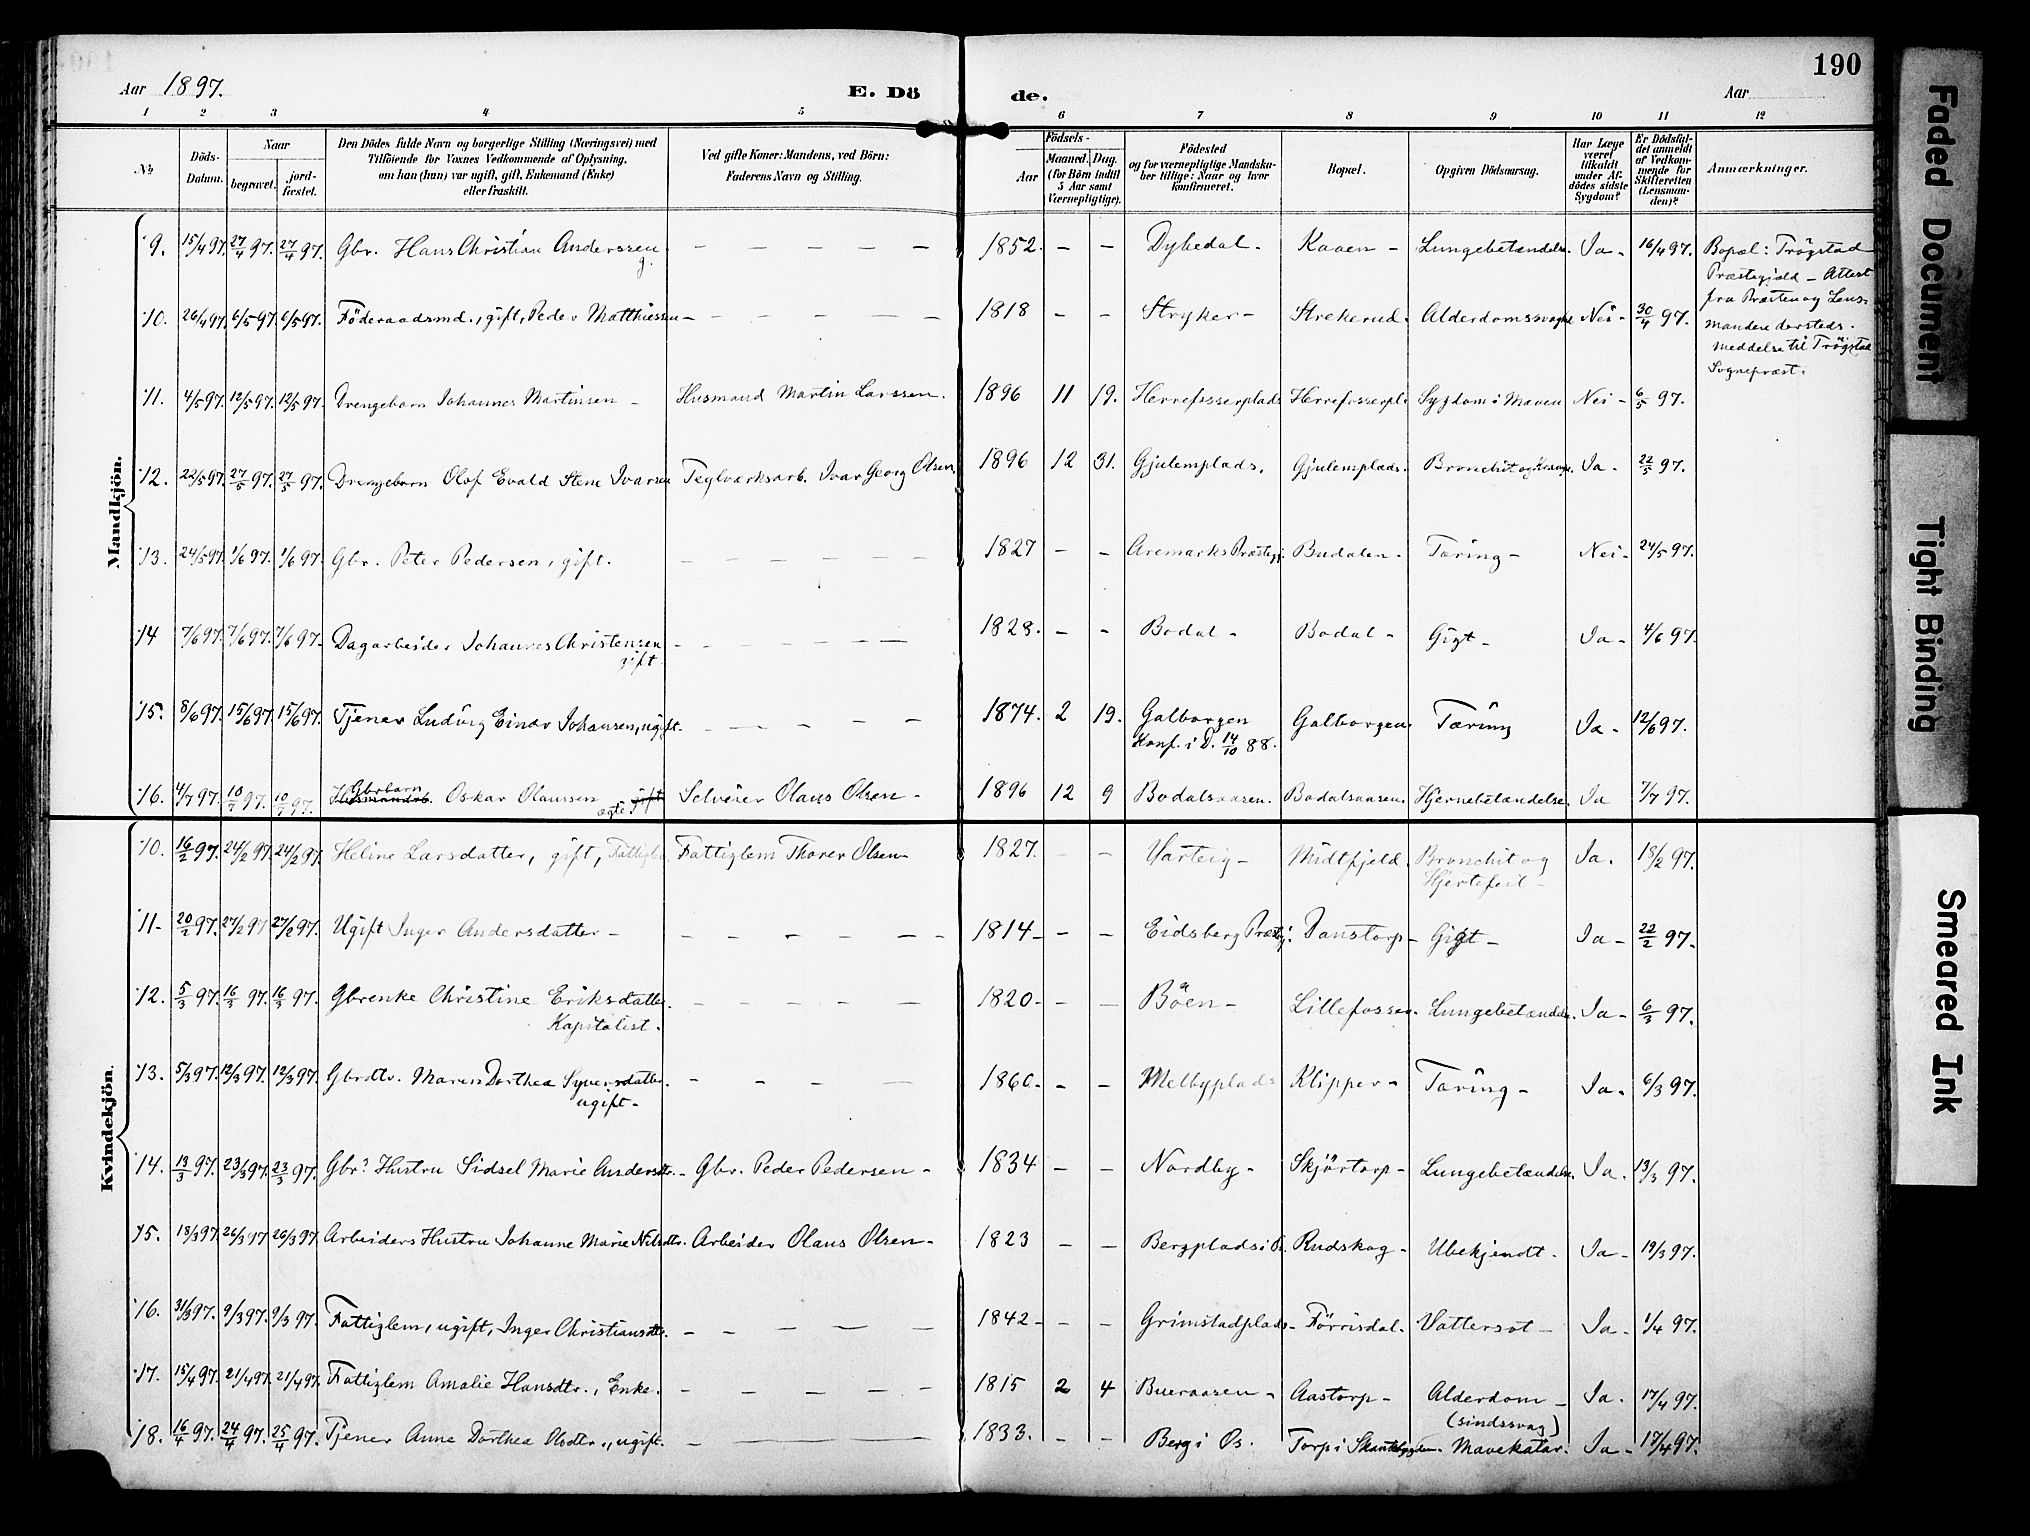 190
Aar 1897. E. Dö de. Aar
1 2 3 4 5 6 7 8 9 10 11 12
№ Döds-Datum. Naar begravet. jord-fæstet. Den Dödes fulde Navn og borgerlige Stilling (Næringsvei) med Tilföiende for Voxnes Vedkommende af Oplysning, om han (hun) var ugift, gift, Enkemand (Enke) eller fraskilt. Ved gifte Koner: Mandens, ved Börn: Faderens Navn og Stilling. Födsels- Aar Maaned. Dag. (for Börn indtil 5 Aar samt Værnepligtige). Födested og for værnepligtige Mandskaber tillige: Naar og hvor konfirmeret. Bopæl. Opgiven Dödsaarsag. Har Læge været tilkaldt under Afdödes sidste Sygdom? Er Dödsfaldet anmeldt af Vedkommende for Skifteretten (Lensmanden)? Anmærkninger.
Mandkjön.
9. 15/4 97. 27/4 97. 27/4 97. Gbr. Hans Christian Anderssen g. — — — — — 1852. — — Dybedal — Kaaen — Lungebetændelse. Ja — 16/4 97. Bopæl: Trögstad
Præstegjæld — Attest
fra Præsten og Lens-
mandens dersteds.
Meddelse til Trögstad
Sognepræst.
10. 26/4 97. 6/5 97. 6/5 97. Föderaadsmd., gift, Peder Matthiessen — — — — — 1818 — — Stryker — Strekerud. Alderdomssvaghd Nei — 30/4 97.
11. 4/5 97. 12/5 97. 12/5 97. Drengebarn Johannes Martinsen — Husmand Martin Larssen. 1896 11 19. Herrefosserplads Herrefosserpl. Sygdom i Maven Nei — 6/5 97.
12. 22/5 97. 27/5 97. 27/5 97. Drengebarn Olof Evald Stene Ivarsen Teglværksarb. Ivar Georg Olsen. 1896 12 31. Gjulemplads. Gjulemplads. Bronchit og Ja. 22/5 97.
13. 24/5 97. 1/6 97. 1/6 97. Gbr. Peter Pedersen, gift. — — — — — 1827 — — Aremarks Præstegj. Budalen — Tæring — Nei — 24/5 97.
14 7/6 97. 7/6 97. 7/6 97. Dagarbeider Johannes Christensen gift. — — — — — 1828. — — Bodal — Bodal — Gigt — Ja — 4/6 97.
15. 8/6 97. 15/6 97. 15/6 97. Tjener Ludvig Einar Johansen, ugift. — — — — — 1874. 2 19. Galborgen Konf. i D. 14/10 88. Galborgen. Tæring Ja — 12/6 97.
16. 4/7 97. 10/7 97. 10/7 97. Gbrbarn Oskar Olaussen ægte Selveier Olaus Olsen — 1896 12 9 Bodalsaasen. Bodalsaasen. Hjernebetændelse. Ja 7/7 97.
Kvindekjön.
10. 16/2 97. 24/2 97. 24/2 97. Heline Larsdatter, gift, Fattiglem Fattiglem Thorer Olsen — 1827. — — Varteig — Midtfjeld. Bronchit og Hjertefeil — Ja. 18/2 97.
11 — 20/2 97. 27/2 97 27/2 97. Ugift Inger Andersdatter — — — — — — 1814 — — — Eidsberg Præstgj. Danstorp — Gigt — Ja — 22/2 97.
12. 5/3 97. 16/3 97. 16/3 97. Gbrenke Christine Eriksdatter. Kapitalist. — — — — 1820 — — — Böen — Lillefossen. Lungebetændelse. Ja — 6/3 97.
13. 5/3 97. 12/3 97. 12/3 97. Gbrdtr. Maren Dorthea Syversdatter. ugift — — — — — 1860 — — — Melbyplads Klipper — Tæring — Ja — 6/3 97.
14. 13/3 97. 23/3 97. 23/3 97. Gbrs Hustru Sidsel Marie Andersdtr. — Gbr. Peder Pedersen — 1834 — — Nordby — Skjörtorp — Lungebetændelse. Ja. 13/3 97.
15. 18/3 97. 26/3 97 26/3 97. Arbeiders Hustru Johanne Marie Nilsdtr. Arbeider Olaus Olsen — 1823 — — Bergplads i Os. Rudskog — Ubekjendt. Ja — 19/3 97.
16. 31/3 97. 9/3 97. 9/3 97. Fattiglem, ugift, Inger Christiansdtr. — — — — — 1842 — — — Grimstadplads — Förrisdal. Vattersot — Ja — 1/4 97.
17. 15/4 97. 21/4 97. 21/4 97. Fattiglem Amalie Hansdtr., Enke. — — — — — 1815 2 4 Bueraasen — Aastorp — Alderdom — (sindssvag) Ja. 17/4 97.
18. 16/4 97. 24/4 97. 25/4 97. Tjener Anne Dorthea Olsdtr., ugift. — — — 1833. — — Berg i Os. Torp i Skantebygden. Mavekatar. Ja — 17/4 97.
Faded Document
Tight Binding
Smeared Ink